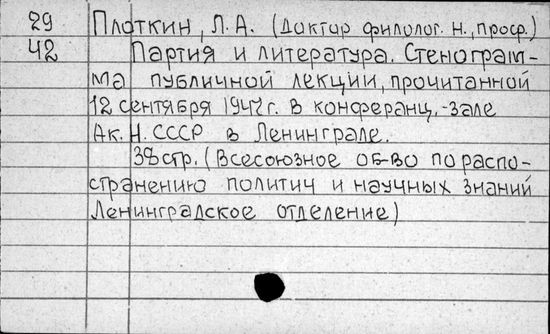 29 Плоткин, Л.А. (Доктор филолог. н., проф.)
42 Партия и литература. Стенограм-
ма публичной лекции, прочитанной
12 сентября 1947 г. в конференц.-зале
Ак. Н. СССР в Ленинграле.
38 стр. (Всесоюзное об-во по распо-
странению политич и научных знаний
Ленинградское отделение)